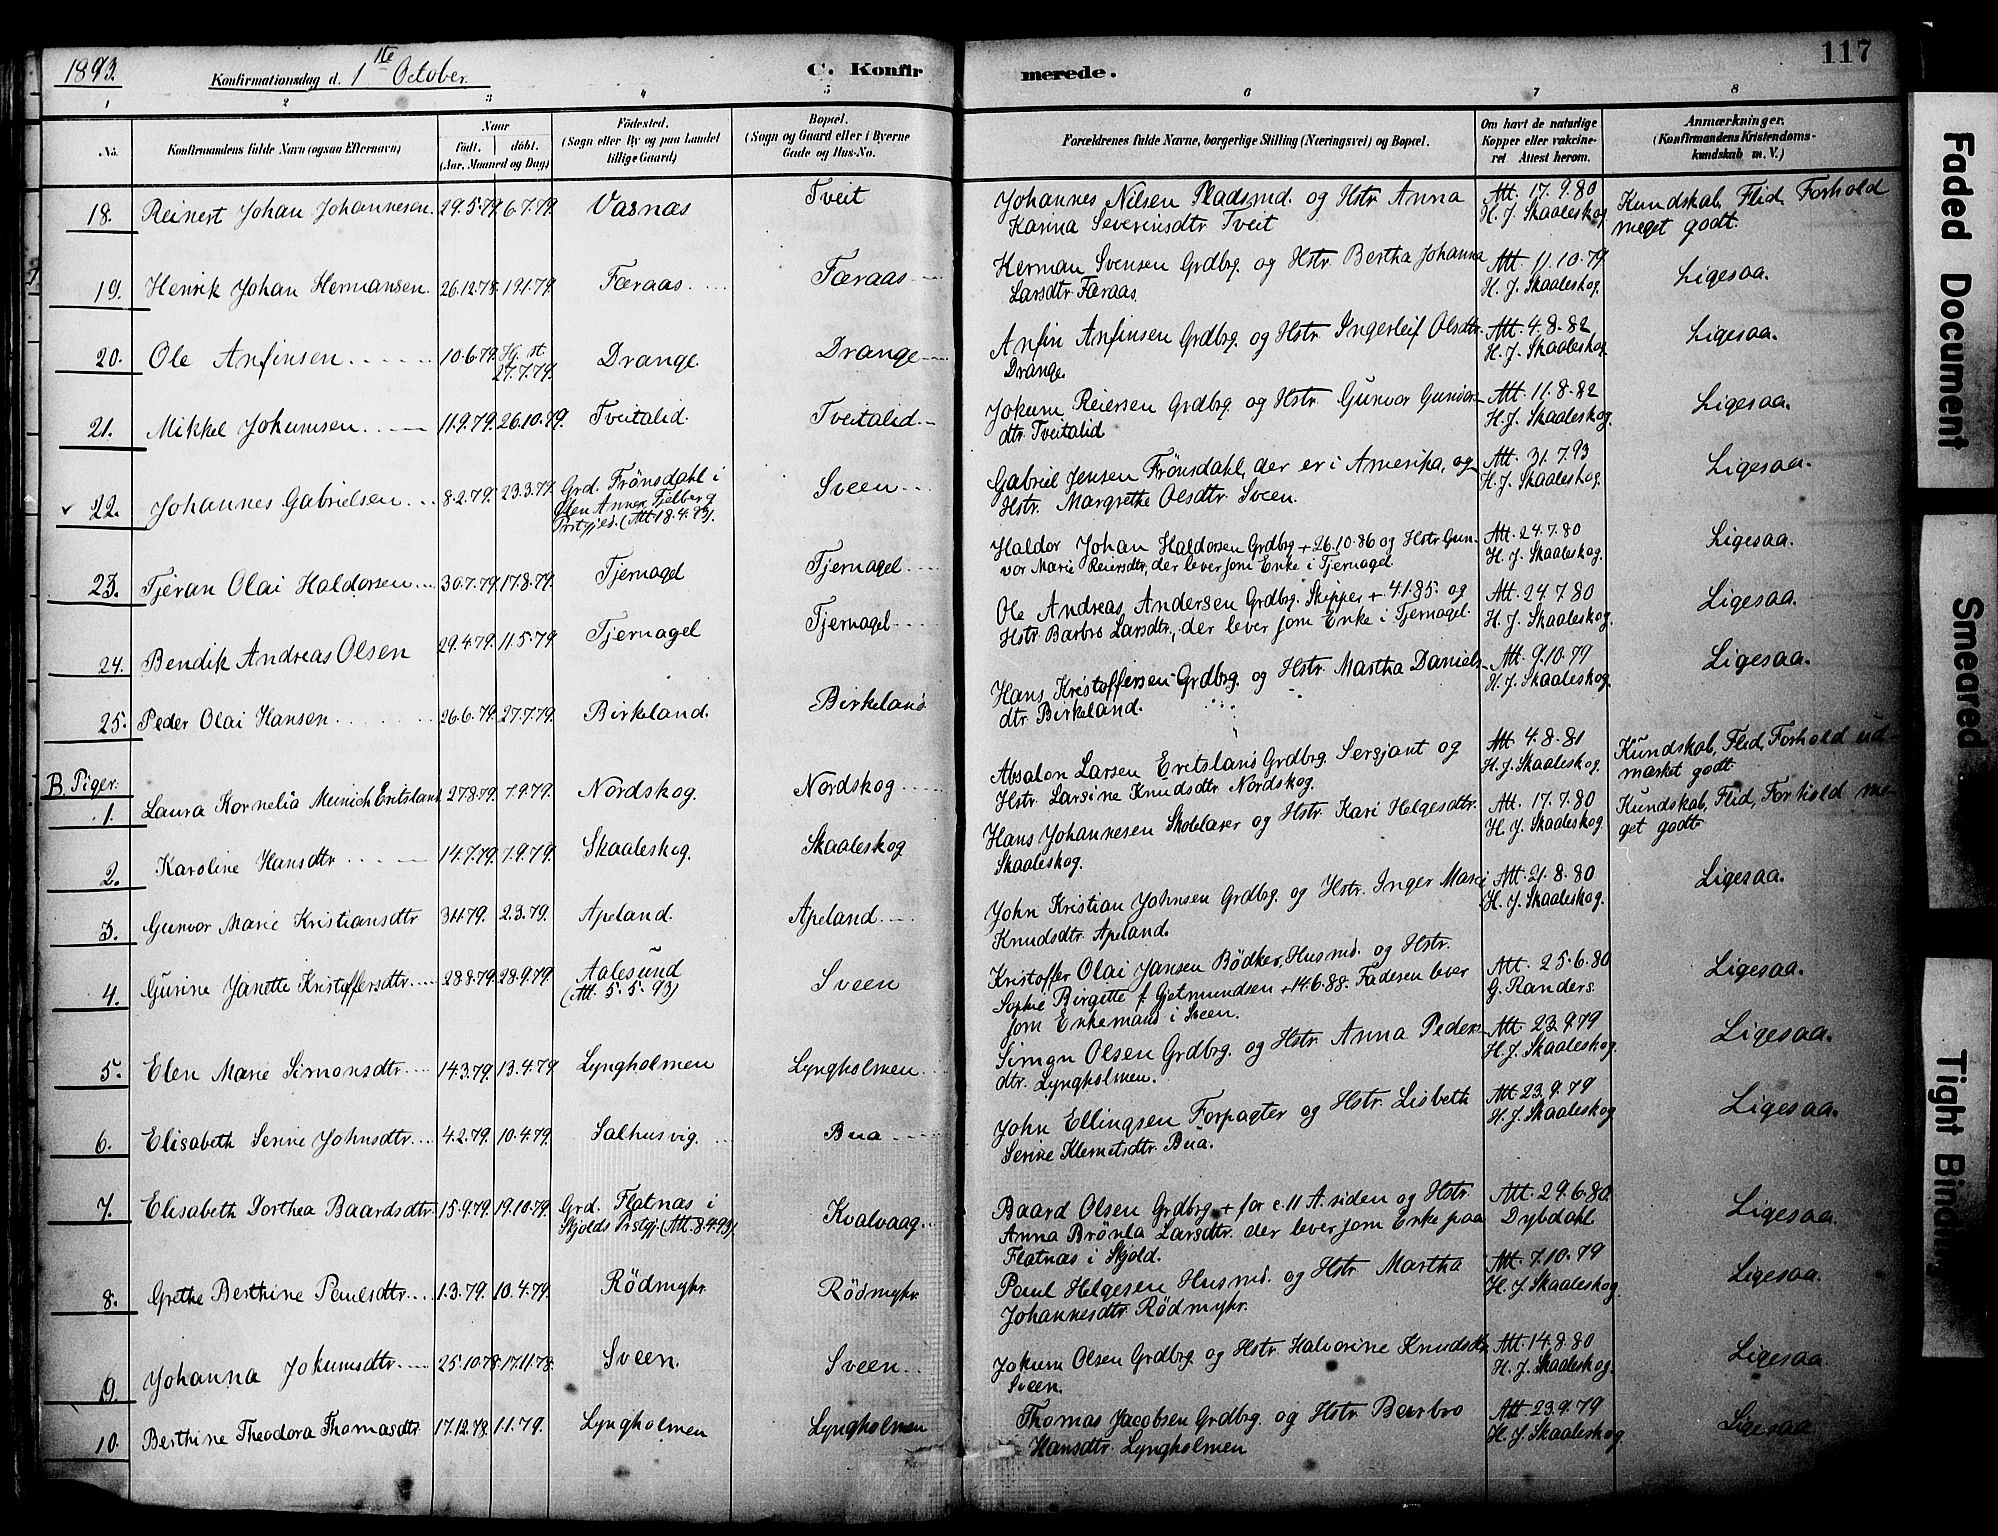 1893.
Konfirmationsdag d. 1ste October.
C. Konfirmerede.
117
1 2 3 4 5 6 7 8
No.
Konfirmandens fulde Navn (ogsaa Efternavn)
Naar
født. døbt.
(Aar, Maaned og Dag)
Fødested.
(Sogn eller By og paa Landet
tillige Gaard)
Bopæl.
(Sogn og Gaard eller i Byerne
Gade og Hus-No.
Forældrenes fulde Navne, borgerlige Stilling (Næringsvei) og Bopæl.
Om havt de naturlige
Kopper eller vakcine-
ret. Attest herom.
Anmærkninger.
(Konfirmandens Kristendoms-
kundskab m. V.)
18. Reinert Johan Johannesen. 29.5.79. 6.7.79. Vasnas Tveit
Johannes Nilsen Pladsmd. og Hstr Anna
Karina Severinsdtr Tveit
Att. 17.9.80
H. J. Skaaleskog
Kundskab, Flid, Forhold
meget godt.
19. Henrik Johan Hermansen. 26.12.78. 19.1.79. Færaas Færaas
Herman Svensen Grdbrg. og Hstr. Bertha Johanna
Larsdtr Færaas.
Att. 11.10.79
H. J. Skaaleskog.
Ligesaa.
20. Ole Anfinsen 10.6.79. Hj. st. 27.7.79. Drange. Drange
Anfin Anfinsen Grdbrg. og Hstr. Ingerleif Olsdtr.
Drange.
Att. 4.8.82
H. J. Skaaleskog.
Ligesaa.
21. Mikkel Jokumsen 11.9.79. 26.10.79. Tveitalid. Tveitalid.
Jokum Reiersen Grdbrg. og Hstr. Gunvor Gunvor-
dtr. Tveitalid
Att. 11.8.82
H. J. Skaaleskog.
Ligesaa.
22. Johannes Gabrielsen 8.2.79. 23.3.79. Grd. Frönsdahl i
Ølen Annex Fjelberg
Prstgjed. (Att. 18.4.93).
Sveen
Gabriel Jensen Frönsdahl, der er i Amerika, og
Hstr. Margrethe Olsdtr. Sveen.
Att. 31.7.93
H. J. Skaaleskog.
Ligesaa.
23. Tjeran Olai Haldorsen 30.7.79. 17.8.79. Tjernagel Tjernagel
Haldor Johan Haldorsen Grdbrg + 26.10.86 og Hstr Gun-
vor Marie Reiersdtr, der lever som Enke i Tjernagel.
Att. 24.7.80
H. J. Skaaleskog.
Ligesaa.
24. Bendik Andreas Olsen 29.4.79. 11.5.79. Tjernagel Tjernagel
Ole Andreas Andersen Grdbrg. Skipper + 4.1.85. og
Hstr. Barbro Larsdtr., der lever som Enke i Tjernagel.
Att. 24.7.80
H. J. Skaaleskog.
Ligesaa.
25. Peder Olai Hansen 26.6.79. 27.7.79. Birkeland. Birkeland
Hans Kristoffersen Grdbrg. og Hstr. Martha Daniels-
dtr. Birkeland.
Att. 9.10.79
H. J. Skaaleskog.
Ligesaa.
B. Piger.
1. Laura Kornelia Meinich Eritsland 27.8.79. 7.9.79. Nordskog. Nordskog
Absalon Larsen Eritsland Grdbrg. Sersjant og
Hstr. Larsine Knudsdtr. Nordskog.
Att. 4.8.81
H. J. Skaaleskog.
Kundskab, Flid, Forhold ud-
mærket godt
2. Karoline Hansdtr 14.7.79. 7.9.79. Skaaleskog. Skaaleskog
Hans Johannesen Skolelærer og Hstr. Kari Helgesdtr.
Skaaleskog.
Att. 17.7.80
H. J. Skaaleskog
Kundskab, Flid, Forhold me-
get godt
3. Gunvor Marie Kristiansdtr 31.1.79. 2.3.79. Apeland. Apeland
John Kristian Johnsen Grdbrg. og Hstr. Inger Marie
Knudsdtr. Apeland.
Att. 21.8.80
H. J. Skaaleskog.
Ligesaa.
4. Gurine Janette Kristoffersdtr. 28.8.79. 28.9.79. Aalesund
(Att. 5.5.93)
Sveen
Kristoffer Olai Jansen Bödker, Husmd. og Hstr.
Sophie Birgitte f. Gjetmundsen + 14.6.88. Faderen lever
som Enkemand i Sveen.
Att. 25.6.80
G. Randers.
Ligesaa.
5. Elen Marie Simonsdtr. 14.3.79. 13.4.79. Lyngholmen Lyngholmen
Simon Olsen Grdbrg. og Hstr. Anna Peders-
dtr. Lyngholmen.
Att. 23.9.79
H. J. Skaaleskog.
Ligesaa.
6. Elisabeth Serine Johnsdtr. 4.2.79. 10.4.79. Salhusvig. Bua
John Ellingsen Forpagter og Hstr. Lisbeth
Serine Klemetsdtr. Bua.
Att. 23.9.79
H. J. Skaaleskog
Ligesaa.
7. Elisabeth Dorthea Baardsdtr. 15.9.79. 19.10.79. Grd. Flatnas i
Skjolds Prstgj. (Att. 8.4.93).
Kvalvaag.
Baard Olsen Grdbrg. + for c. 11 A. siden og Hstr.
Anna Brönla Larsdtr. der lever som Enke paa
Flatnæs i Skjold.
Att. 29.6.80
Dybdahl
Ligesaa.
8. Grethe Berthine Paulsdtr. 1.3.79. 10.4.79. Rödmyhr Rödmyhr.
Paul Helgesen Husmd. og Hstr. Martha
Johannesdtr Rödmyhr.
Att. 7.10.79
H. J. Skaaleskog.
Ligesaa.
9. Johanna Jokumsdtr. 25.10.78. 17.11.78. Sveen. Sveen
Jokum Olsen Grdbrg. og Hstr. Halvorine Knudsdtr
Sveen.
Att. 14.8.80
H. J. Skaaleskog.
Ligesaa.
10. Berthine Theodora Thomasdtr 17.12.78. 1.1.79. Lyngholmen Lyngholmen
Thomas Jacobsen Grdbrg. og Hstr. Barbro
Hansdtr. Lyngholmen
Att. 23.9.79
H. J. Skaaleskog
Ligesaa
Faded Document
Smeared
Tight Binding